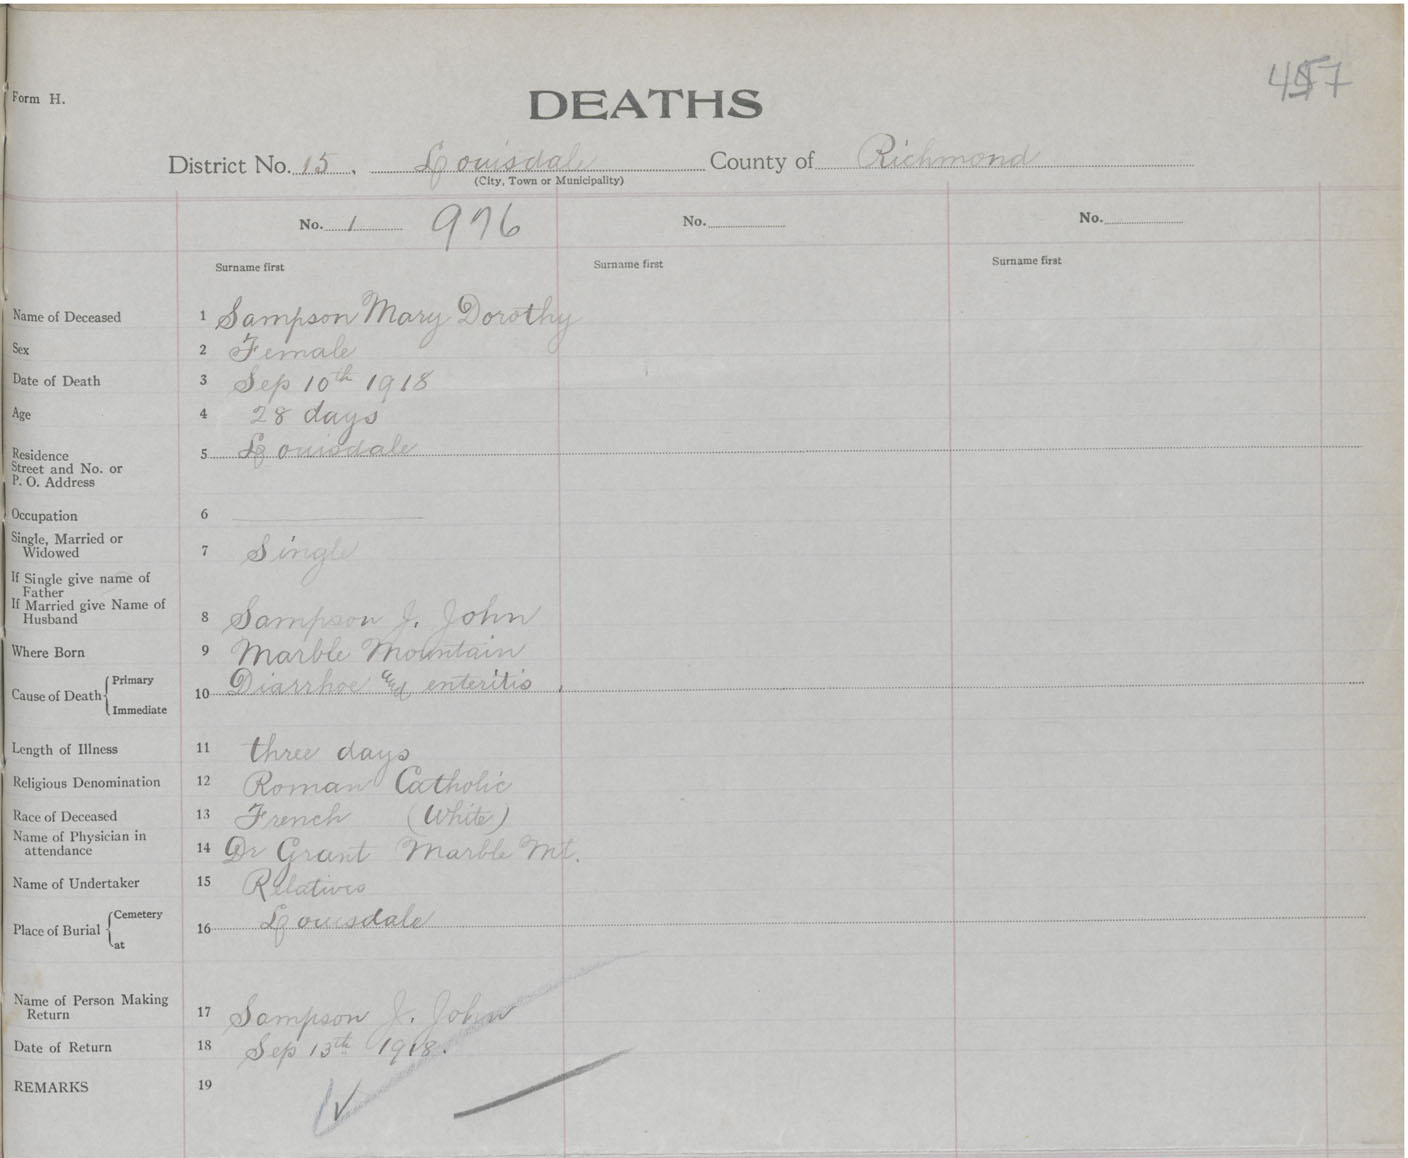 Form H.
DEATHS
District No. 15, Louisdale County of Richmond
(City, Town or Municipality)
No. 1 976 No. No.
Surname first Surname first Surname first
Name of Deceased 1 Sampson Mary Dorothy
Sex 2 Female
Date of Death 3 Sep 10th 1918
Age 4 28 days
Residence 5 Louisdale
Street and No. or
P. O. Address
Occupation 6
Single, Married or
Widowed 7 Single
If Single give name of
Father
If Married give Name of
Husband 8 Sampson J. John
Where Born 9 Marble Mountain
Cause of Death Primary 10 Diarrhoe and enteritis
Immediate
Length of Illness 11 three days
Religious Denomination 12 Roman Catholic
Race of Deceased 13 French (White)
Name of Physician in
attendance 14 Dr Grant Marble Mt.
Name of Undertaker 15 Relatives
Place of Burial Cemetery 16 Louisdale
at
Name of Person Making
Return 17 Sampson J. John
Date of Return 18 Sep 13th 1918.
REMARKS 19